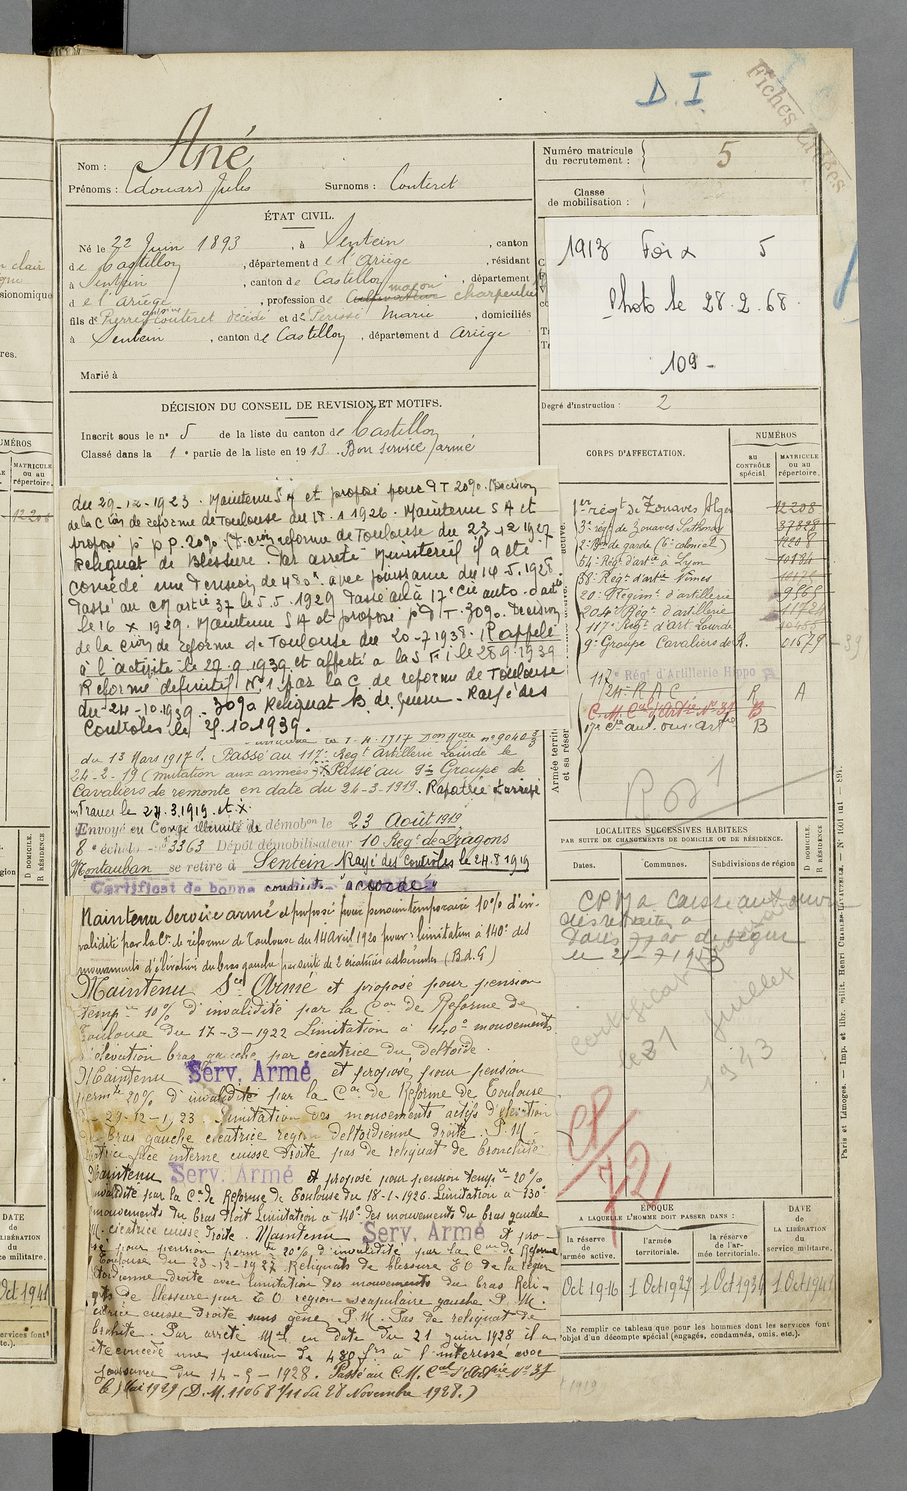 D. I.
Fiches
Nom : Ané
Prénoms : Edouard Jules Surnoms : Couteret
ÉTAT CIVIL.
Né le 22 Juin 1893, à Sentein, canton
de Castillon, département de l'Ariège, résidant
à Sentein, canton de Castillon, département
maçon
de l'Ariège, profession de Cultivateur charpentier
antoine
fils de Pierre Couteret décédé et de Terisse Marie, domiciliés
à Sentein, canton de Castillon, département d Ariège
Marié à
DÉCISION DU CONSEIL DE REVISION ET MOTIFS.
Inscrit sous le n° 5 de la liste du canton de Castillon
Classé dans la 1e partie de la liste en 1913. Bon service armé
du 29-12-1923. Maintenu SA et proposé pour P T 20%. Décision
de la Cion de réforme de Toulouse du 18.1.1926. Maintenu SA et
proposé pr P.P. 20% (+ Cion réforme de Toulouse du 23.12.1927
Reliquat de Blessure. Par arreté Ministeriel il a été
concédé une Pension de 480f avec jouissance du 14.5.1928.
Passé au CM artie 37 le 5.5.1929 Passé à la 17e Cie auto. d'artie
le 16 X 1929. Maintenu SA et proposé pr P T. 30%. Décision
de la Cion de réforme de Toulouse du 20-7-1938. Rappelé
à l'activité le 27.9.1939 et affecté a la S F I le 28.9.1939
Reforme definitif N° 1 par la C. de reforme de Toulouse
du 24-10.1939. 30% Reliquat B. de guerre. Rayé des
Controles le 25.10.1939.
du 13 Mars 1917. Passé au 117e Régt Artillerie Lourde le
24-2-19 (mutation aux armées). Passé au 9e Groupe de
Cavaliers de remonte en date du 24-3-1919. Rapatrié et arrivé
en France le 27.3.1919 et X
Envoyé en Congé illimité de démobon le 23 Août 1919
8e échelon n° 3363 Dépôt démobilisateur 10 Reg de Dragons
Montauban se retire à Sentein Rayé des contrôles le 24.8.1919
Certificat de bonne conduite "accordé"
Maintenu Service armé et proposé pour pension temporaire 10% d'in-
validité par la Cn de réforme de Toulouse du 14 Avril 1920 pour : limitation à 140° des
mouvements d'élévation du bras gauche par suite de 2 cicatrices adhérentes (B.d.G)
Maintenu Sce Armé et proposé pour pension
tempre 10% d'invalidité par la Con de Reforme de
Toulouse du 17-3-1922 Limitation à 140° mouvements
d'élévation bras gauche par cicatrice du deltoïde.
Maintenu Serv. Armé et proposé pour pension
permte 20% d'invalidité par la Con de Réforme de Toulouse
du 29-12-1923 Limitation des mouvements actifs d'élévation
du bras gauche cicatrice region deltoïdienne droite. P.M.
cicatrice face interne cuisse droite pas de reliquat de bronchite
Maintenu Serv. Armé et proposé pour pension tempre 20%
invalidité par la Cn de Réforme de Toulouse du 18-1-1926. Limitation à 130°
mouvements du bras droit Limitation à 140° des mouvements du bras gauche
P.M. cicatrice cuisse droite. Maintenu Serv. Armé et pro-
posé pour pension permte 20% d'invalidité par la Con de Réforme
de Toulouse du 23-12-1927 Reliquats de blessure E O de la région
deltoïdienne droite avec limitation des mouvements du bras Reli-
quats de blessure par E O région scapulaire gauche. P.M.
cicatrice cuisse droite sans gêne P.M. Pas de reliquat de
bronchite. Par arrêté Mel en date du 21 Juin 1928 il a
été concédé une pension de 480 frs à l'intéressé avec
jouissance du 14-5-1928. Passé au C.M. Cal d'Artie N° 37
le 5 Mai 1929 (D.M. 11068 1/11 du 28 Novembre 1928.)
Numéro matricule du recrutement : 5
Classe de mobilisation :
1913 Foix 5
Photo le 28.2.68.
109-
Degré d'instruction : 2
CORPS D'AFFECTATION.
NUMÉROS
au CONTRÔLE spécial.
MATRICULE ou au répertoire.
1er régt de Zouaves Alger 12208
3e régt de Zouaves Sathonay 37828
54e Régt d'artie à Lyon 10184
38e Régt d'artie Nîmes
20e Régimt d'artillerie 9565
204e Rég. d'artillerie 11724
117e Régt d'art. Lourde
9e Groupe Cavaliers de R. 01679
117e Régt d'Artillerie Hippo A
24e R A C R A
C.M. Cal d'Artie N° 37 B
17e Cie aut. ouv. artie B
LOCALITÉS SUCCESSIVES HABITÉES
PAR SUITE DE CHANGEMENTS DE DOMICILE OU DE RÉSIDENCE.
Dates. Communes. Subdivisions de région
D DOMICILE.
R RÉSIDENCE
des retraites a
Paris
le 21-7-1953
Certificat
le 31 Juillet
1943
72
ÉPOQUE
A LAQUELLE L'HOMME DOIT PASSER DANS :
la réserve de l'armée active.
l'armée territoriale.
la réserve de l'armée territoriale.
DATE de la LIBÉRATION du service militaire.
Oct 1916 1 Oct 1927 1 Oct 1934 1 Oct 1941
Ne remplir ce tableau que pour les hommes dont les services font
l'objet d'un décompte spécial (engagés, condamnés, omis, etc.).
Paris et Limoges. — Imp. et libr. milit. Henri Charles-Lavauzelle.